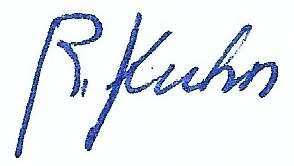 R. Kuhn